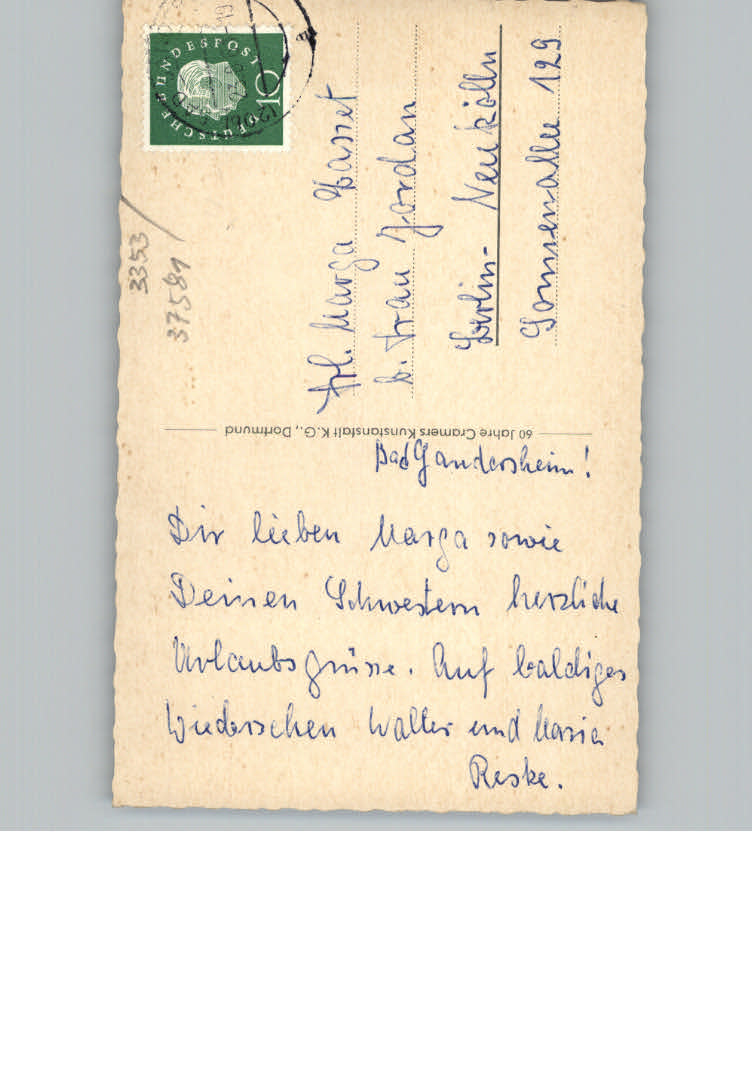 Bad Gandersheim!
Dir lieben Marga sowie
Deinen Schwestern herzliche
Urlaubsgrüsse. Auf baldiges
Wiedersehen Walter und Maria
Reske.
60 Jahre Cramers Kunstanstalt K.G., Dortmund
Frl. Marga
b. Frau Jordan
Berlin-Neukölln
Sonnenallee 129
DEUTSCHE BUNDESPOST
10
3353
37581